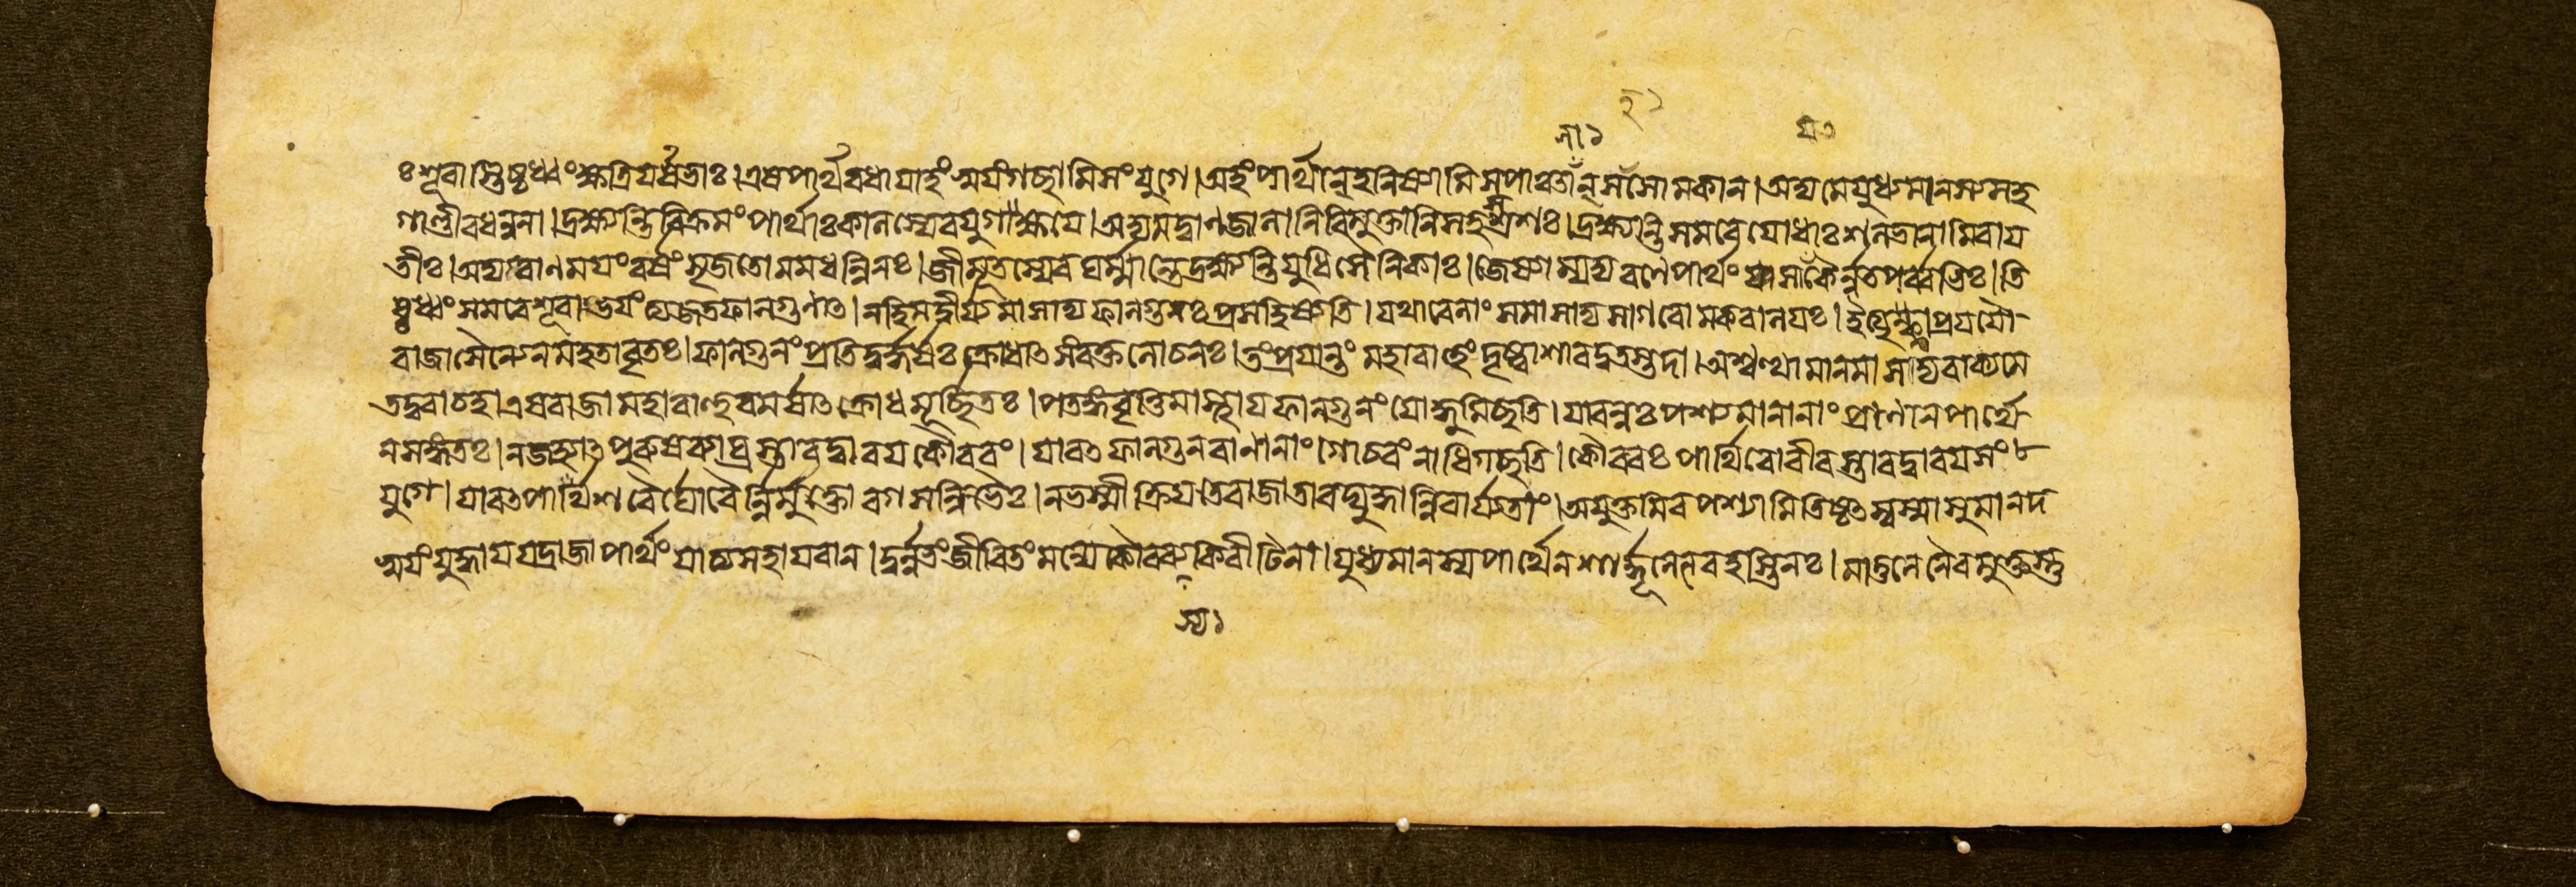 ঃ শূরাস্তিষ্ঠধ্বং ক্ষত্রিযর্ষভাঃ।এষপার্থবধাযাহং স্বযংগচ্ছামিসংযুগে।অহংপার্থান্হনিষ্যামিসপাঞ্চালান্সসোমকান।অদ্যমেযুধ্যমানস্যসহ
গাণ্ডীবধন্বনা।দ্রক্ষ্যন্তিবিক্রমং পার্থাঃকালস্যেবযুগক্ষযে।অদ্যমদ্বাণজালানিবিমুক্তানিসহস্রশঃ।দ্রক্ষ্যন্তিসমরেযোধাঃশলভানামিবায
তীঃ।অদ্যবাণমযংবর্ষং সৃজতোমমধন্বিনঃ।জীমূতস্যেবঘর্ম্মান্তেদ্রক্ষ্যন্তিযুধিসৈনিকাঃ।জেষ্যাম্যদ্যরণেপার্থং সাযকৈর্ন্নতপর্ব্বভিঃ।তি
ষ্ঠধ্বং সমরেশূরাভযং ত্যজতফালগুনাৎ।নহিমদ্বীর্য্যমাসাদ্যফালগুনঃপ্রসহিষ্যতি।যথাবেলাং সমাসাদ্যসাগরোমকরালযঃ।ইত্যুক্ত্বাপ্রযযৌ
রাজাসৈন্যেনমহতাবৃতঃ।ফালগুনং প্রতিদুর্দ্ধর্ষঃ ক্রোধাৎ সংরক্তলোচনঃ।তংপ্রযান্তং মহাবাহুং দৃষ্ট্বাশারদ্বতস্তদা।অশ্বত্থামানমাসাদ্যবাক্যমে
তদুবাচহ।এষরাজামহাবাহুরমর্ষাৎ ক্রোধমূর্চ্ছিতঃ।পতঙ্গবৃত্তিমাস্থাযফালগুনং যোদ্ধুমিচ্ছতি।যাবন্নঃ পশ্যমানানাং প্রাণানপার্থে
নসঙ্গতঃ।নজহ্যাৎ পুরুষব্যাঘ্রস্তাবদ্বারযকৌরবং।যাবৎ ফালগুনবাণানাং গোচরং নাধিগচ্ছতি।কৌরবঃ পার্থিবোবীরস্তাবদ্বারযসং
যুগে।যাবৎপার্থশরৈর্ঘোরৈর্ন্নির্ম্মুক্তোরগসন্নিভৈঃ।নভস্মীক্রিযতেরাজাতাবদ্যুদ্ধান্নিবার্য্যতাং।অযুক্তমিবপশ্যামিতিষ্ঠৎস্বস্মাসুমানদ
স্বযংযুদ্ধাযযদ্রাজাপার্থং যাত্যসহাযবান।দুর্ল্লভং জীবিতং মন্যেকৌরব্যকিরীটিনা।যুধ্যমানস্যপার্থেনশার্দ্দূলেনেবহস্তিনঃ।মাতুলেনৈবমুক্তস্তু
স্য১